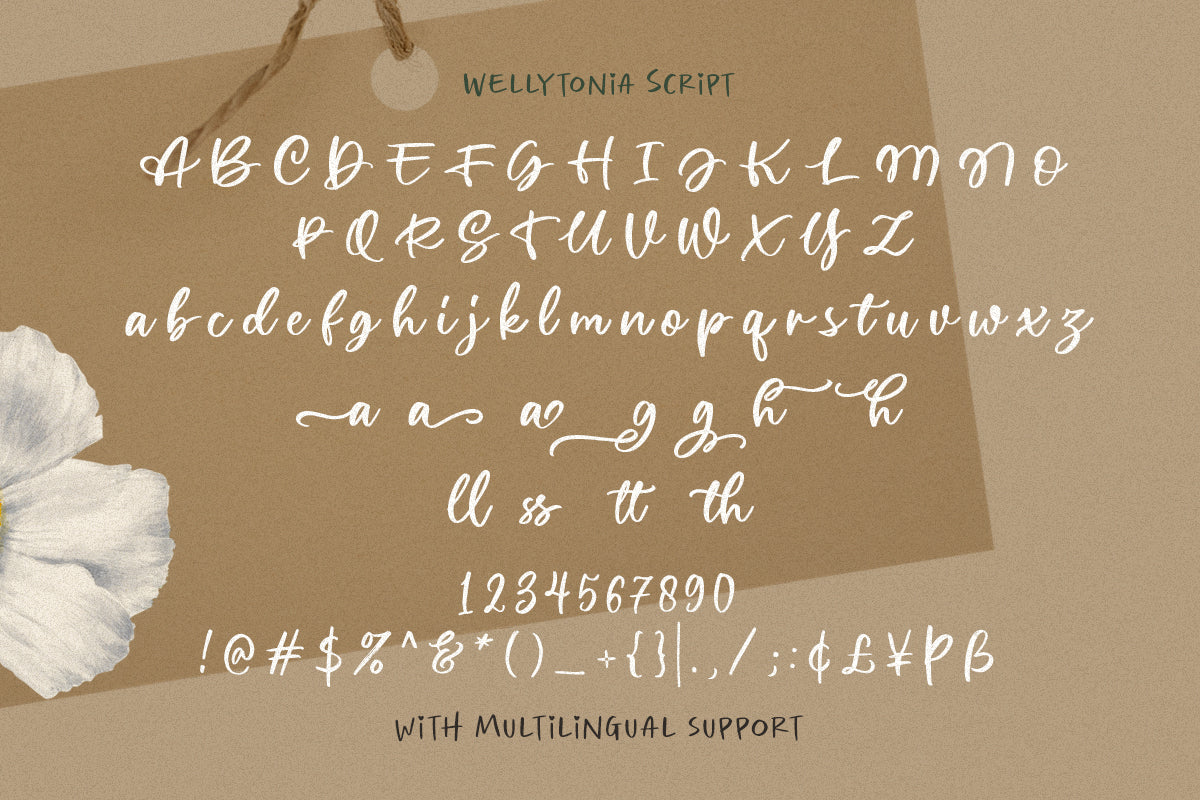 WELLYTONiA SCRiPT
A B C D E F G H I J K L M N O
P Q R S T U V W X Y Z
a b c d e f g h i j k l m n o p q r s t u v w x z
a a a g g h h
ll ss tt th
1 2 3 4 5 6 7 8 9 0
! @ # $ % ^ & * ( ) _ + { } | . , / ; : ¢ £ ¥ Þ ß
WiTH MULTiLiNGUAL SUPPORT